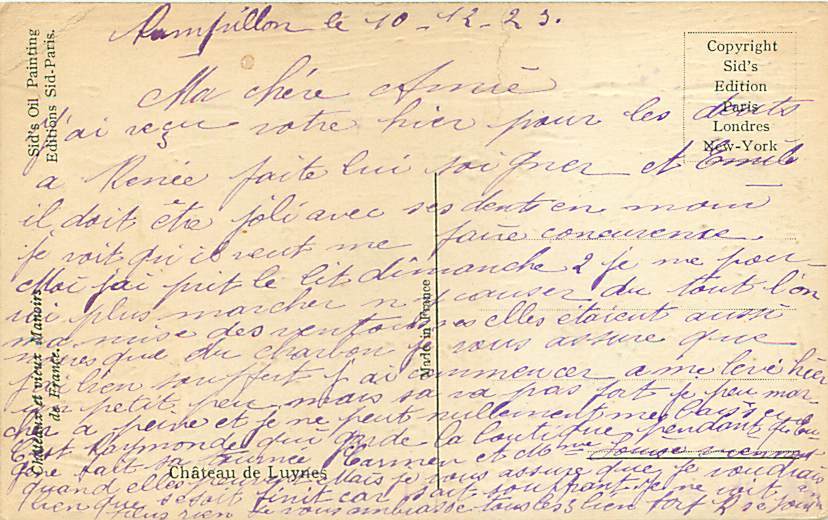 Rampillon le 10-12-23.
Ma chère Amie
j'ai reçu votre hier pour les dents
a Renée faite lui soigner et Emile
il doit être joli avec ses dents en moins
je voit qu'il veut me faire concurence
Moi j'ai prit le lit dimanche 2 je ne pou-
vai plus marcher n'y causer du tout l'on
ma mise des ventouses elles étaient aussi
noires que du charbon je vous assure que
j'ai bien souffert j'ai commencer a me levé hier
un petit peu mais sa va pas fort je peu mar-
cher a peine et je ne peut nullement me baisser
c'est Raymonde qui garde la boutique pendant que
père fait sa tournée Carmen et Mme Louise viennent
quand elles peuvent Mais je vous assure que je voudrais
bien que se soit finit car sait souffrant je ne voit
plus rien Je vous embrasse tous les 3 bien fort
Sid's Oil Painting
Editions Sid-Paris.
Copyright
Sid's
Edition
Paris
Londres
New-York
Made in France
Châteaux et vieux Manoirs
de France.
Château de Luynes